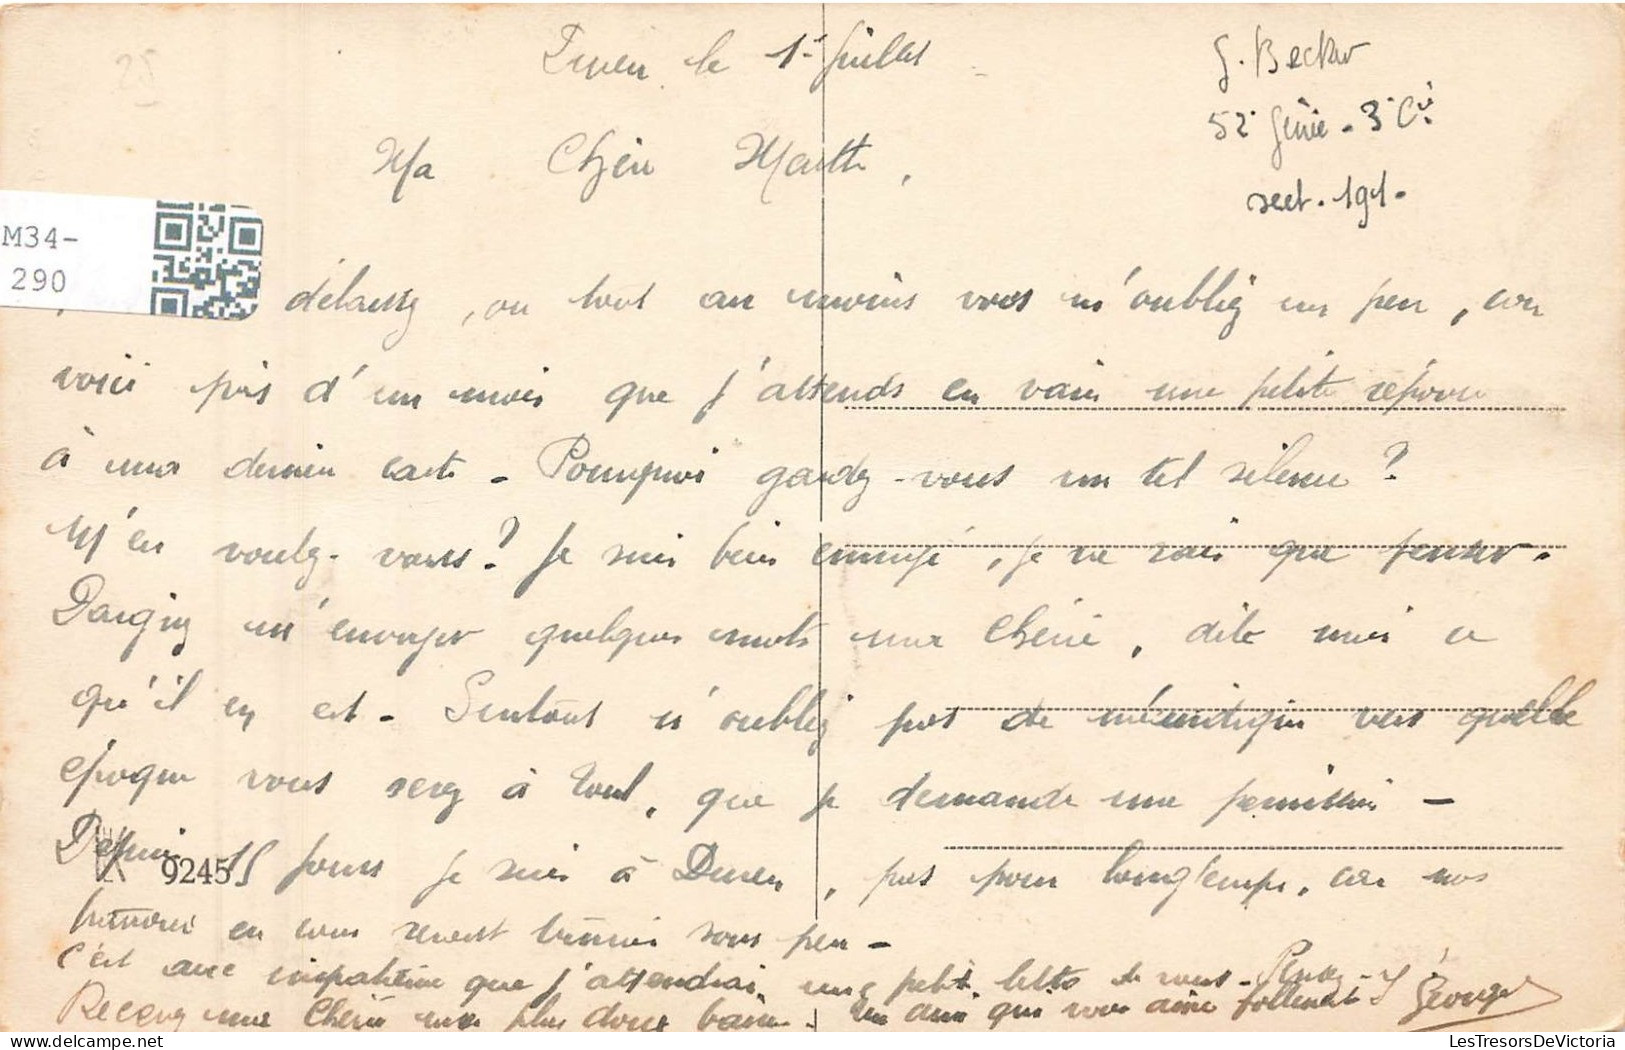 25
Duren le 1er juillet
G. Becker
52e Génie - 3e Cie
sect. 191.
Ma Chérie Marthe,
M34-
290
délaissez, ou tout au moins vous m'oubliez un peu, car
voici près d'un mois que j'attends en vain une petite réponse
à ma dernière carte - Pourquoi gardez-vous un tel silence ?
M'en voulez-vous ? Je suis bien ennuyé, je ne sais que penser.
Daignez m'envoyer quelques mots ma Chérie, dite moi ce
qu'il en est - Surtout n'oubliez pas de vers quelle
époque vous serez à Toul, que je demande une permission -
Depuis 15 jours je suis à Duren, pas pour longtemps, car nos
travaux en cours seront terminés sous peu -
9245
C'est avec impatience que j'attendrai une petite lettre de vous -
Recevez ma Chérie mes plus doux baisers. Un ami qui vous aime follement Georges
LesTresorsDeVictoria.com